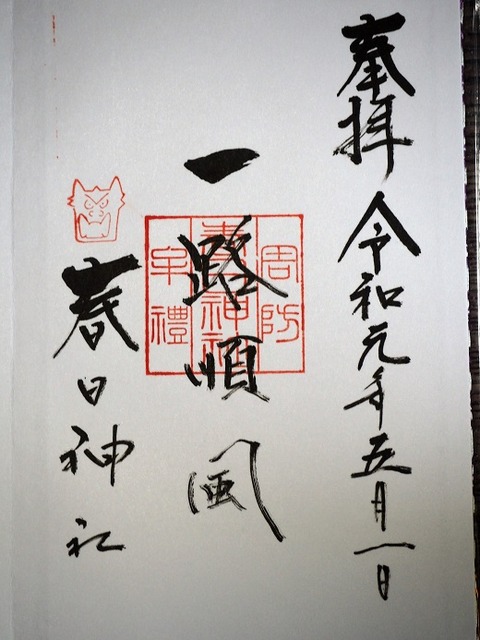 奉拝 令和元年五月一日
一路順風
周防
春日神社
牟禮
春日神社